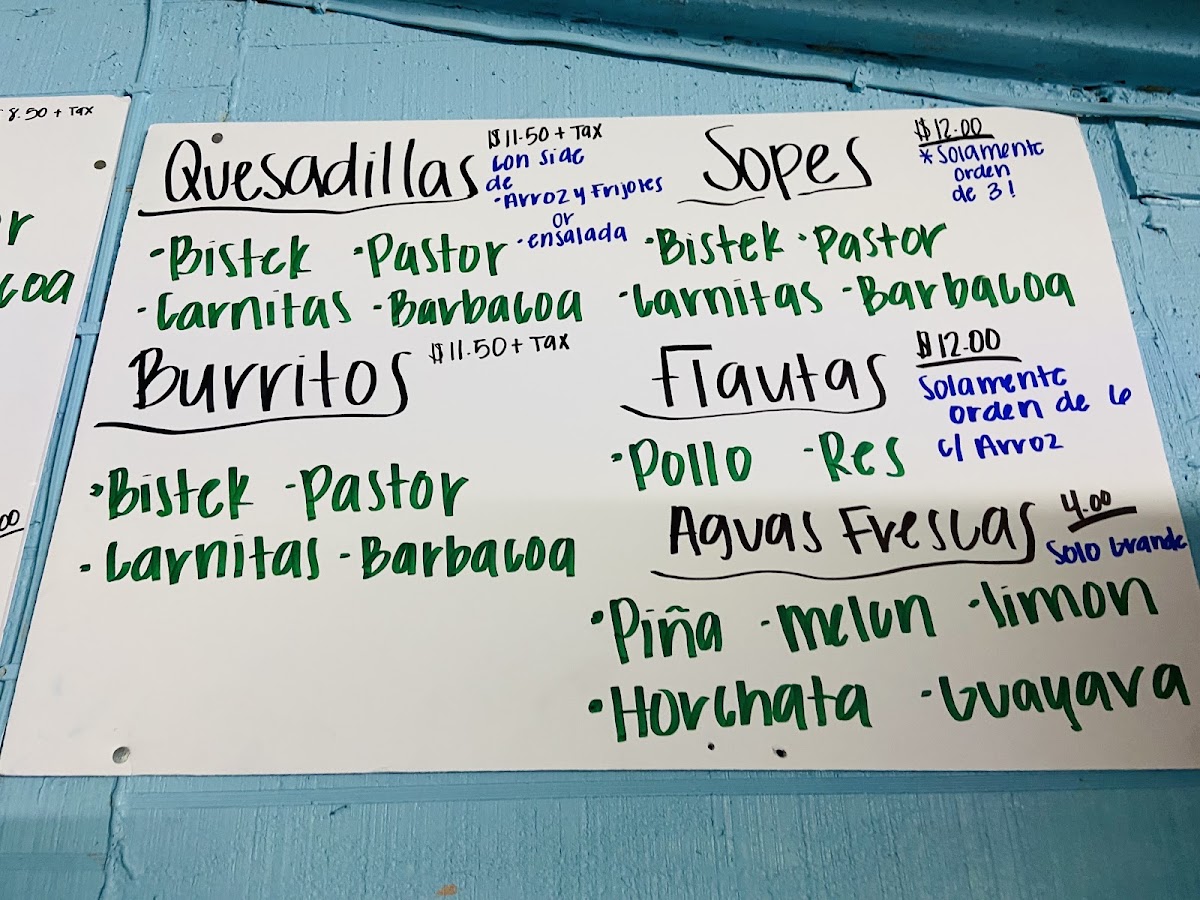 8.50 + Tax
Quesadillas $11.50 + Tax
con side
de
- Arroz y Frijoles
or
- ensalada
• Bistek • Pastor
- Carnitas - Barbacoa
Burritos $11.50 + Tax
• Bistek - Pastor
- Carnitas - Barbacoa
Sopes $12.00
* Solamente
orden
de 3!
• Bistek • Pastor
• Carnitas - Barbacoa
Flautas $12.00
Solamente
orden de 6
c/ Arroz
• Pollo - Res
Aguas Frescas 4.00
Solo Grande
• Piña - melon - limon
• Horchata - Guayava